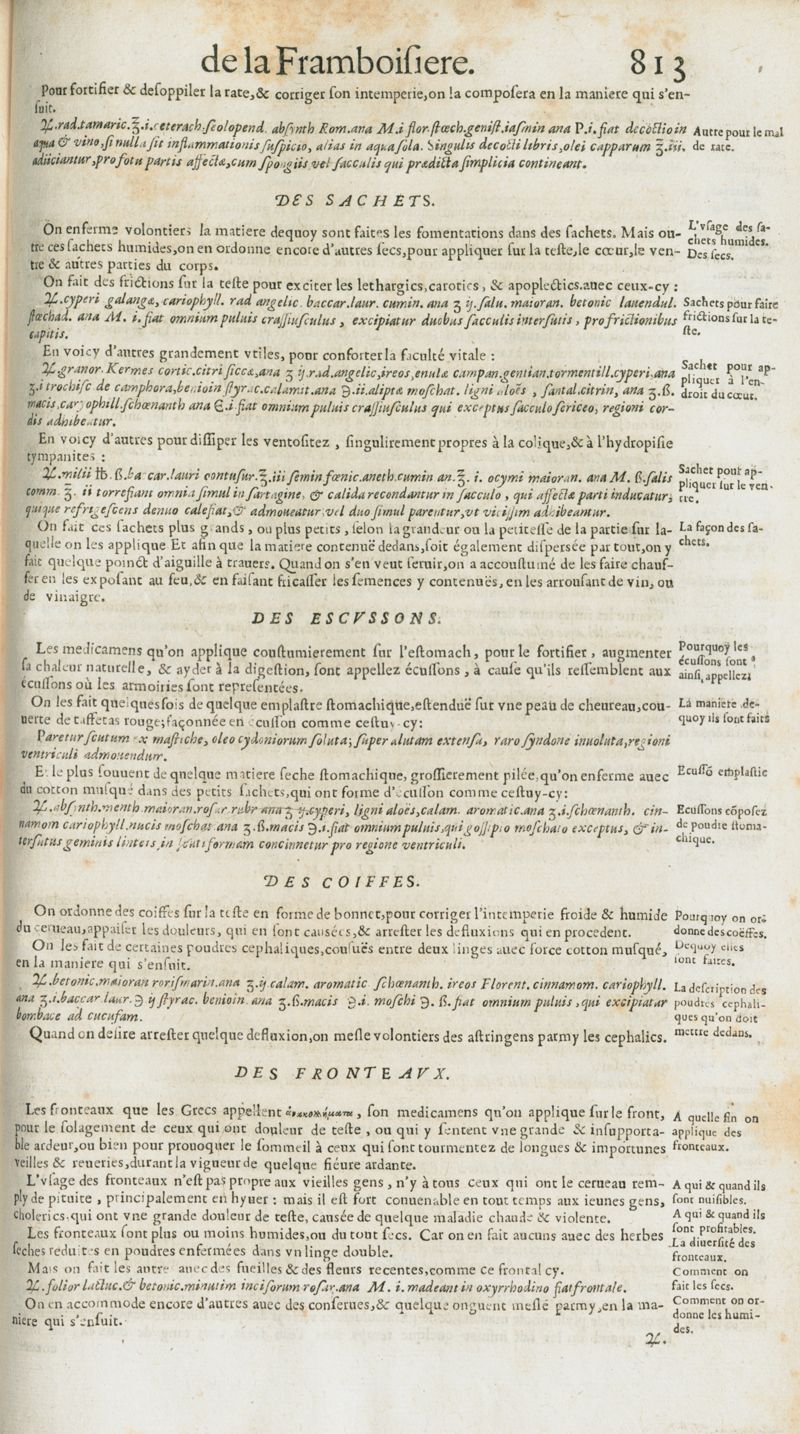 de la Framboiſiere. 813
Pour fortifier & deſoppiler la rate,& corriger ſon intemperie,on la compoſera en la maniere qui s'en-
ſuit.
♃.rad.tamaric.℥.i.ceterach ſcolopend. abſynth Rom.ana M.i flor.ſtœch.geniſt.iaſmin ana P.i.fiat decoctio in
aqua & vino,ſi nulla ſit inflammationis ſuſpicio, alias in aqua ſola. Singulis decocti libris,olei capparum ℥.iii.
adiiciantur,pro fotu partis affectæ,cum ſpongiis vel ſacculis qui prædicta ſimplicia contineant.
Autre pour le mal
de rate.
DES SACHETS.
On enferme volontiers la matiere dequoy sont faites les fomentations dans des ſachets. Mais ou-
tre ces ſachets humides,on en ordonne encore d'autres ſecs,pour appliquer ſur la teſte,le cœur,le ven-
tre & autres parties du corps.
L'vſage des ſa-
chets humides.
Des ſecs.
On fait des frictions ſur la teſte pour exciter les lethargics,carotics, & apoplectics.auec ceux-cy :
♃.cyperi galangæ, cariophyll. rad angelic. baccar.laur. cumin. ana ʒ ij.ſalu. maioran. betonic lauendul.
ſtœchad. ana M. i. fiat omnium puluis craſſiuſculus, excipiatur duobus ſacculis interſutis, pro frictionibus
capitis.
Sachets pour faire
frictions ſur la te-
ſte.
En voicy d'autres grandement vtiles, pour conforter la faculté vitale :
♃.granor.Kermes cortic.citri ſiccæ,ana ʒ ij.rad.angelic,ireos,enulæ campan.gentian.tormentill.cyperi,ana
ʒ.i trochiſc de camphora,benioin ſtyrac.calamit.ana ℈.ii.aliptæ moſchat. ligni aloës, ſantal.citrin, ana ʒ.ß.
macis,caryophill.ſchœnanth ana ℈.i fiat omnium puluis craſſiuſculus qui exceptus ſacculo ſericeo, regioni cor-
dis adhibeatur.
Sachet pour ap-
pliquer à l'en-
droit du cœur.
En voicy d'autres pour diſſiper les ventoſitez, ſingulirement propres à la colique,& à l'hydropiſie
tympanites :
♃.milii ℔.ß.ba car.lauri contuſur.℥.iii ſemin fœnic.aneth.cumin an.℥. i. ocymi maioran. ana M. ß.ſalis
comm. ℥. ii torrefiant omnia ſimul in ſartagine, & calida recondantur in ſacculo, qui affectæ parti inducatur,
quique refrigeſcens denuo calefiat,& admoueatur,vel duo ſimul parentur,vt viciſſim adhibeantur.
Sachet pour ap-
pliquer ſur le ven-
tre.
On fait ces ſachets plus grands, ou plus petits, ſelon la grandeur ou la petiteſſe de la partie ſur la-
quelle on les applique Et afin que la matiere contenuë dedans,ſoit également diſperſée par tout,on y
fait quelque poinct d'aiguille à trauers. Quand on s'en veut ſeruir,on a accouſtumé de les faire chauf-
fer en les expoſant au feu,& en faiſant fricaſſer les ſemences y contenuës, en les arrouſant de vin, ou
de vinaigre.
La façon des ſa-
chets.
DES ESCVSSONS.
Les medicamens qu'on applique couſtumierement ſur l'eſtomach, pour le fortifier, augmenter
ſa chaleur naturelle, & ayder à la digeſtion, ſont appellez écuſſons, à cauſe qu'ils reſſemblent aux
écuſſons où les armoiries ſont repreſentées.
Pourquoy les
écuſſons ſont
ainſi appellez.
On les fait quelquesfois de quelque emplaſtre ſtomachique,eſtenduë ſur vne peau de cheureau,cou-
uerte de taffetas rouge;façonnée en écuſſon comme ceſtuy-cy:
La maniere de-
quoy ils ſont faits
Paretur ſcutum ex maſtiche, oleo cydoniorum ſoluta; ſuper alutam extenſa, raro ſyndone inuoluta,regioni
ventriculi admouendum.
Et le plus ſouuent de quelque matiere ſeche ſtomachique, groſſierement pilée,qu'on enferme auec
du cotton muſqué dans des petits ſachets,qui ont forme d'écuſſon comme ceſtuy-cy:
Ecuſſõ emplaſtic
♃.abſynth.menth.maioran.roſar.rubr ana ʒ ij.cyperi, ligni aloës,calam. aromatic.ana ʒ.i.ſchœnanth. cin-
namom cariophyll.nucis moſchat ana ʒ.ß.macis ℈.i.fiat omnium puluis,qui goſſipio moſchato exceptus, & in-
terſutus geminis linteis,in ſcuti formam concinnetur pro regione ventriculi.
Ecuſſons cõpoſez
de poudre ſtoma-
chique.
DES COIFFES.
On ordonne des coiffes ſur la teſte en forme de bonnet,pour corriger l'intemperie froide & humide
du cerueau,appaiſer les douleurs, qui en ſont causées,& arreſter les defluxions qui en procedent.
Pourquoy on or-
donne des coëffes.
On les fait de certaines poudres cephaliques,couſuës entre deux linges auec force cotton muſqué,
en la maniere qui s'enſuit.
Dequoy elles
ſont faites.
♃.betonic.maioran roriſmarin.ana ʒ.ij calam. aromatic ſchœnanth. ireos Florent. cinnamom. cariophyll.
ana ʒ.i.baccar laur. ℈ ij ſtyrac. benioin ana ʒ.ß.macis ℈.i. moſchi ℈. ß.fiat omnium puluis, qui excipiatar
bombace ad cucufam.
La deſcription des
poudres cephali-
ques qu'on doit
mettre dedans.
Quand on deſire arreſter quelque defluxion,on meſle volontiers des aſtringens parmy les cephalics.
DES FRONTEAVX.
Les fronteaux que les Grecs appellent, ſon medicamens qu'on applique ſur le front,
pour le ſolagement de ceux qui ont douleur de teſte, ou qui y ſentent vne grande & inſupporta-
ble ardeur,ou bien pour prouoquer le ſommeil à ceux qui ſont tourmentez de longues & importunes
veilles & reueries,durant la vigueur de quelque fiéure ardante.
A quelle fin on
applique des
fronteaux.
L'vſage des fronteaux n'eſt pas propre aux vieilles gens, n'y à tous ceux qui ont le cerueau rem-
ply de pituite, principalement en hyuer : mais il eſt fort conuenable en tout temps aux ieunes gens,
cholerics,qui ont vne grande douleur de teſte, causée de quelque maladie chaude & violente.
A qui & quand ils
ſont nuiſibles.
A qui & quand ils
ſont profitables.
Les fronteaux ſont plus ou moins humides,ou du tout ſecs. Car on en fait aucuns auec des herbes
ſeches reduites en poudres enfermées dans vn linge double.
La diuerſité des
fronteaux.
Mais on fait les autre auec des fueilles & des fleurs recentes,comme ce frontal cy.
♃.folior lactuc.& betonic.minutim inciſorum roſar.ana M. i. madeant in oxyrrhodino fiat frontale.
Comment on
fait les ſecs.
On en accommode encore d'autres auec des conſerues,& quelque onguent meſlé parmy,en la ma-
niere qui s'enſuit.
Comment on or-
donne les humi-
des.
♃.